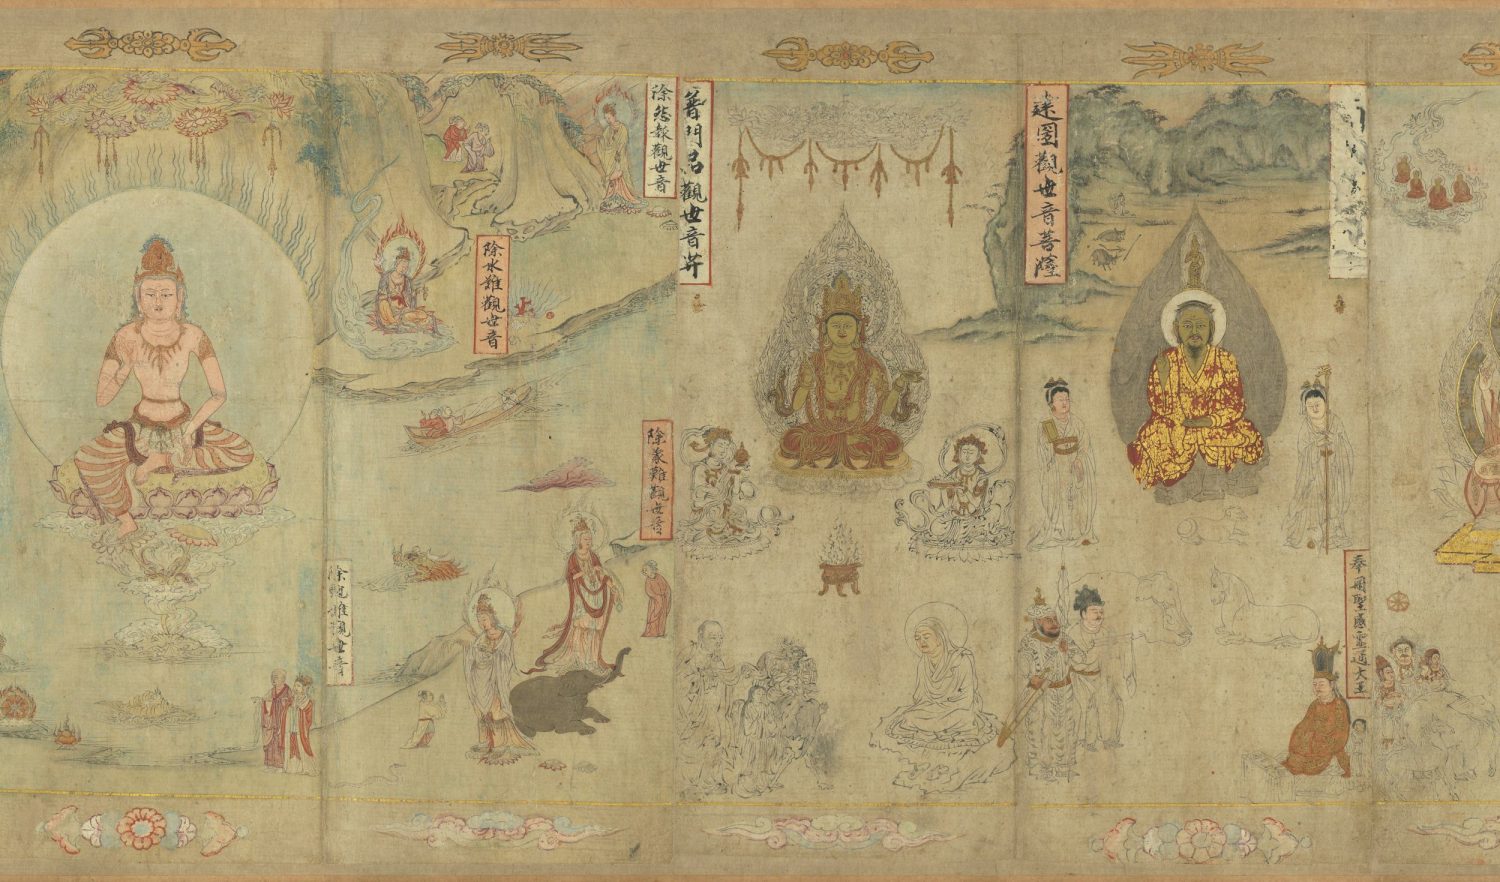 奉冊聖感靈通大王
建國觀世音菩薩
普門品觀世音𦬇
除怨報觀世音
除象難觀世音
除水難觀世音
除難觀世音